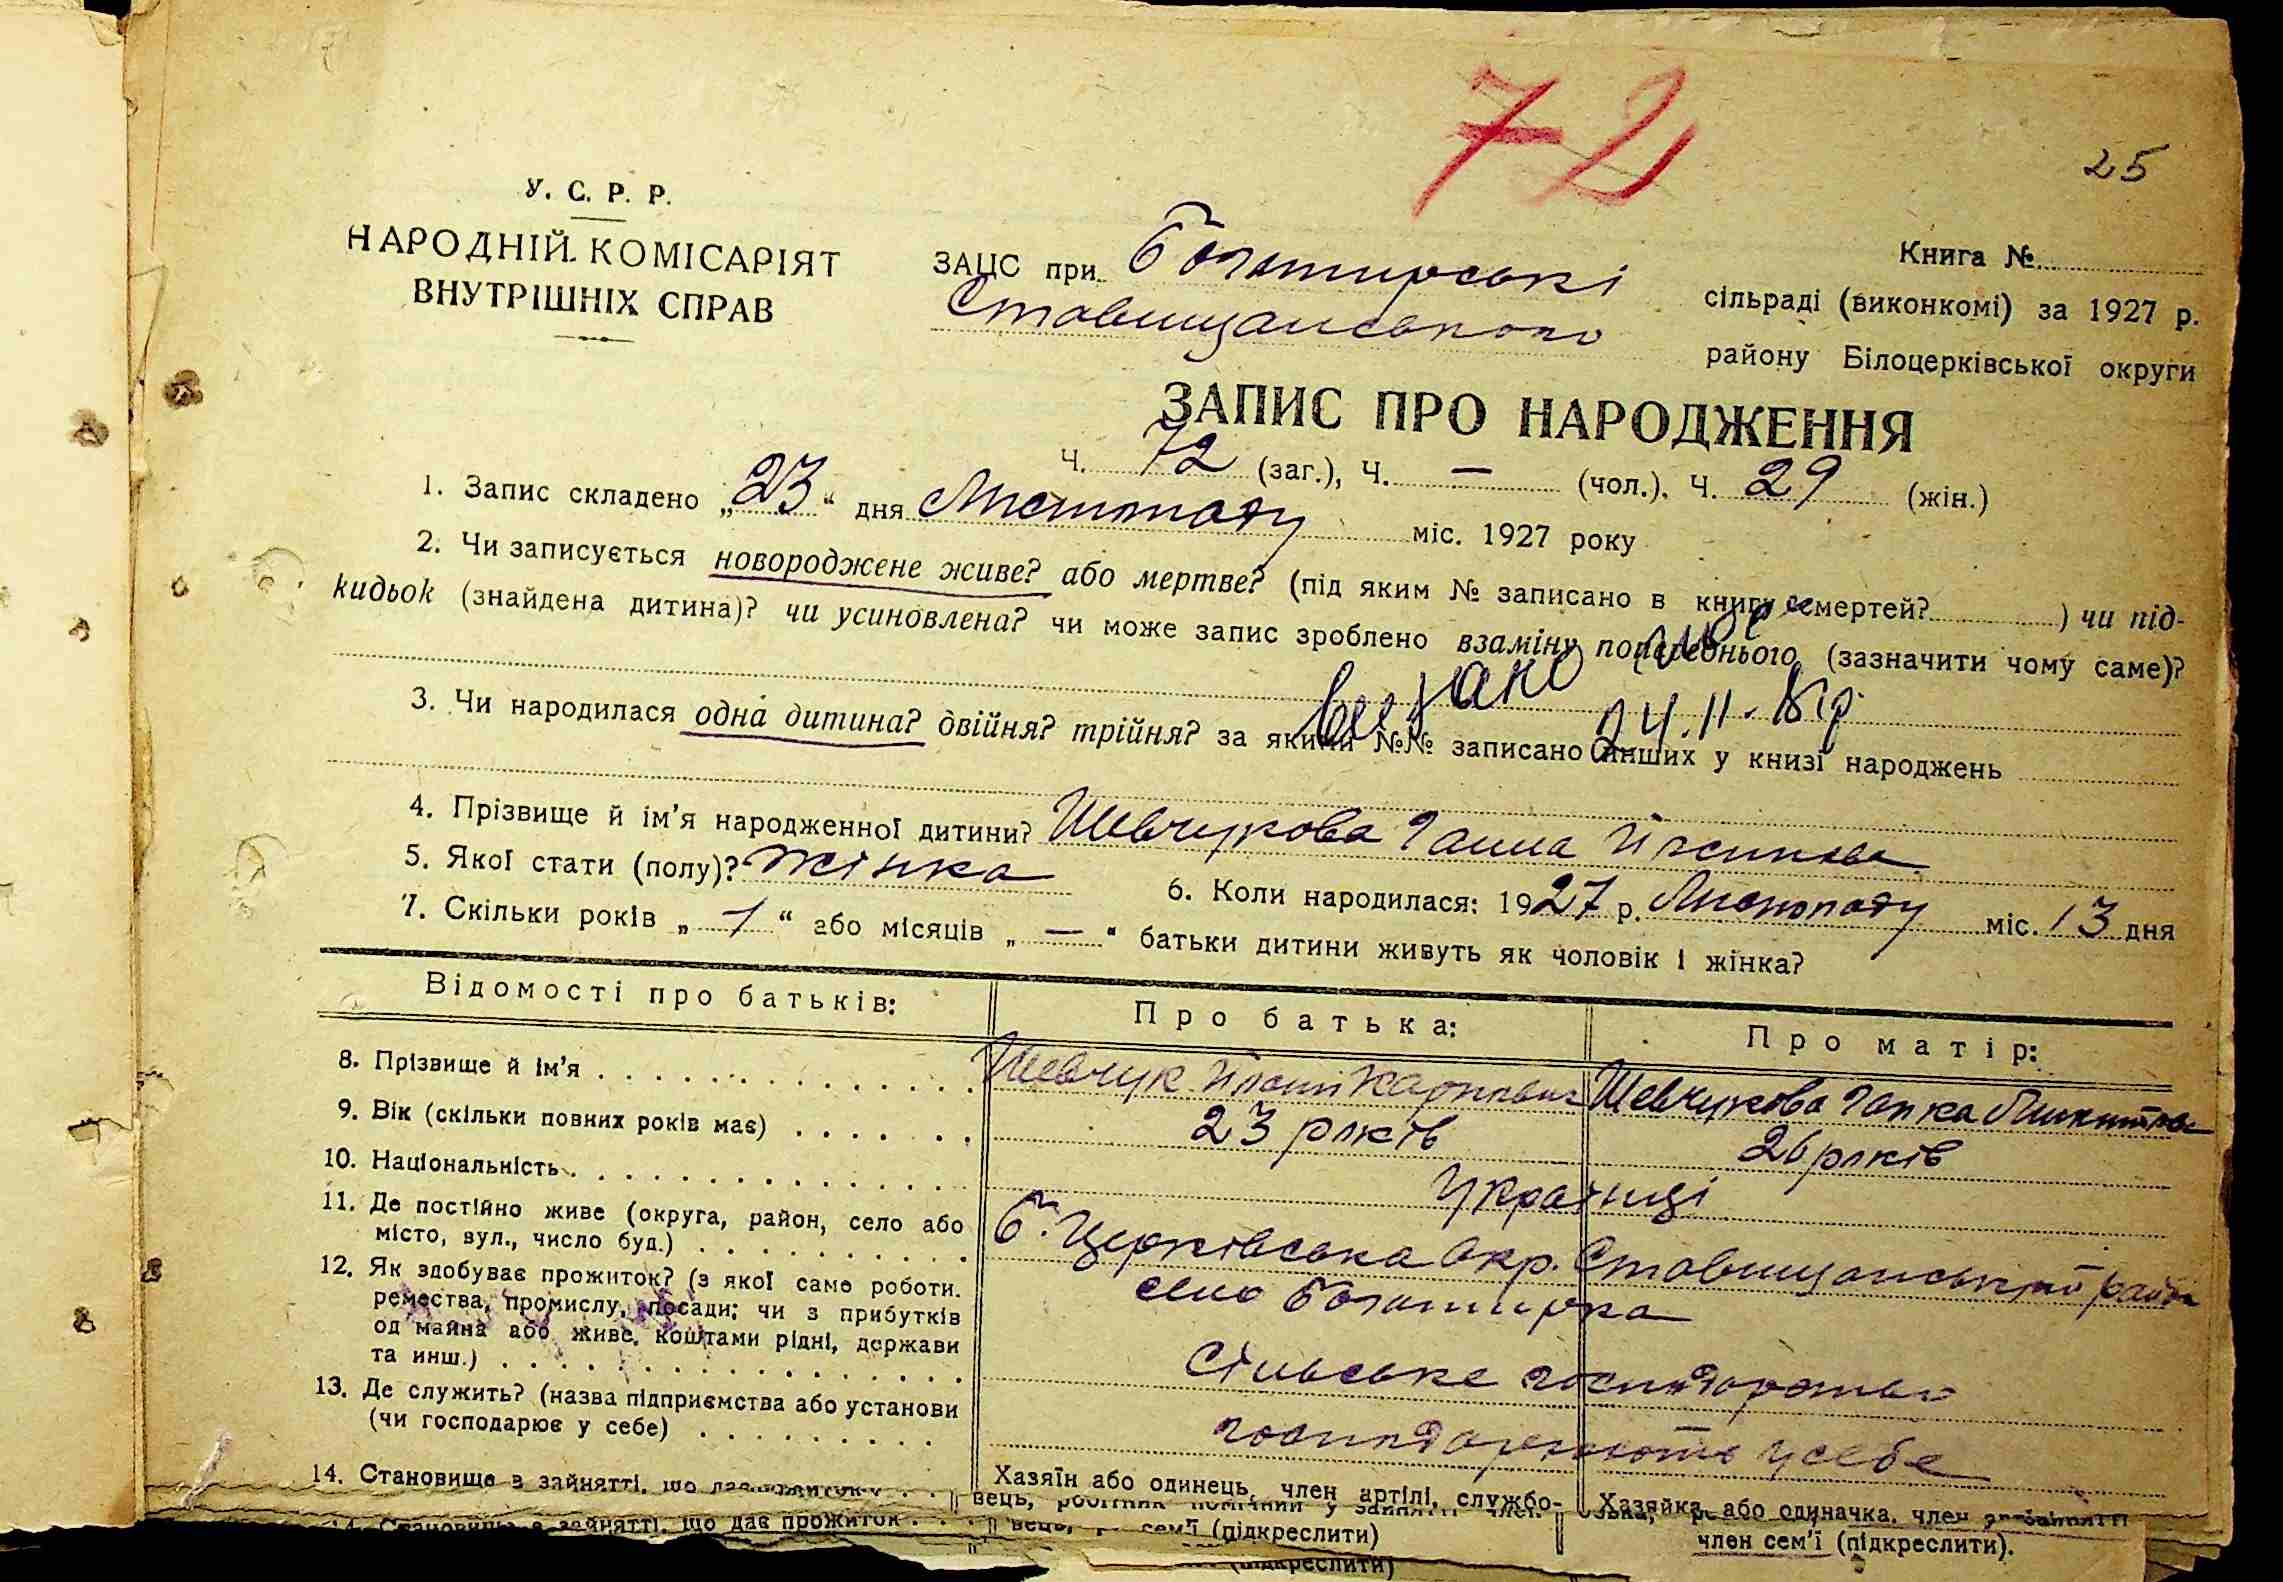 72
25
У. С. Р. Р.
НАРОДНІЙ КОМІСАРІЯТ
ВНУТРІШНІХ СПРАВ
Книга №
ЗАЦС при Богатирські сільраді (виконкомі) за 1927 р.
Ставищанського району Білоцерківської округи
ЗАПИС ПРО НАРОДЖЕННЯ
Ч. 72 (заг.), Ч. — (чол.). Ч. 29 (жін.)
1. Запис складено „23“ дня Листопаду міс. 1927 року
2. Чи записується новороджене живе? або мертве? (під яким № записано в книгу смертей? ) чи під-
кидьок (знайдена дитина)? чи усиновлена? чи може запис зроблено взаміну попереднього (зазначити чому саме)?
3. Чи народилася одна дитина? двійня? трійня? за якими №№ записано инших у книзі народжень
4. Прізвище й ім'я народженної дитини? Шевчукова Ганна
5. Якої стати (полу)? жінка 6. Коли народилася: 1927 р. Листопаду міс. 13 дня
7. Скільки років „ 1 “ або місяців „ — “ батьки дитини живуть як чоловік і жінка?
Відомості про батьків: Про батька: Про матір:
8. Прізвище й ім'я Шевчук Карпович Шевчукова Гапка
9. Вік (скільки повних років має) 23 років 26 років
10. Національність Українці
11. Де постійно живе (округа, район, село або Б. Церківська окр. Ставищанський район
місто, вул., число буд.) село Богатирка
12. Як здобуває прожиток? (з якої саме роботи.
ремества, промислу, посади; чи з прибутків
од майна або живе, коштами рідні, держави Сільське господарство
та инш.)
13. Де служить? (назва підприємства або установи
(чи господарює у себе) господарюють у себе
14. Становище в зайнятті, що Хазяїн або одинець, член артілі, службо- Хазяйка або одиначка, член
14. Становище в зайнятті, що дає прожиток сем'ї (підкреслити) член сем'ї (підкреслити).
(підкреслити)